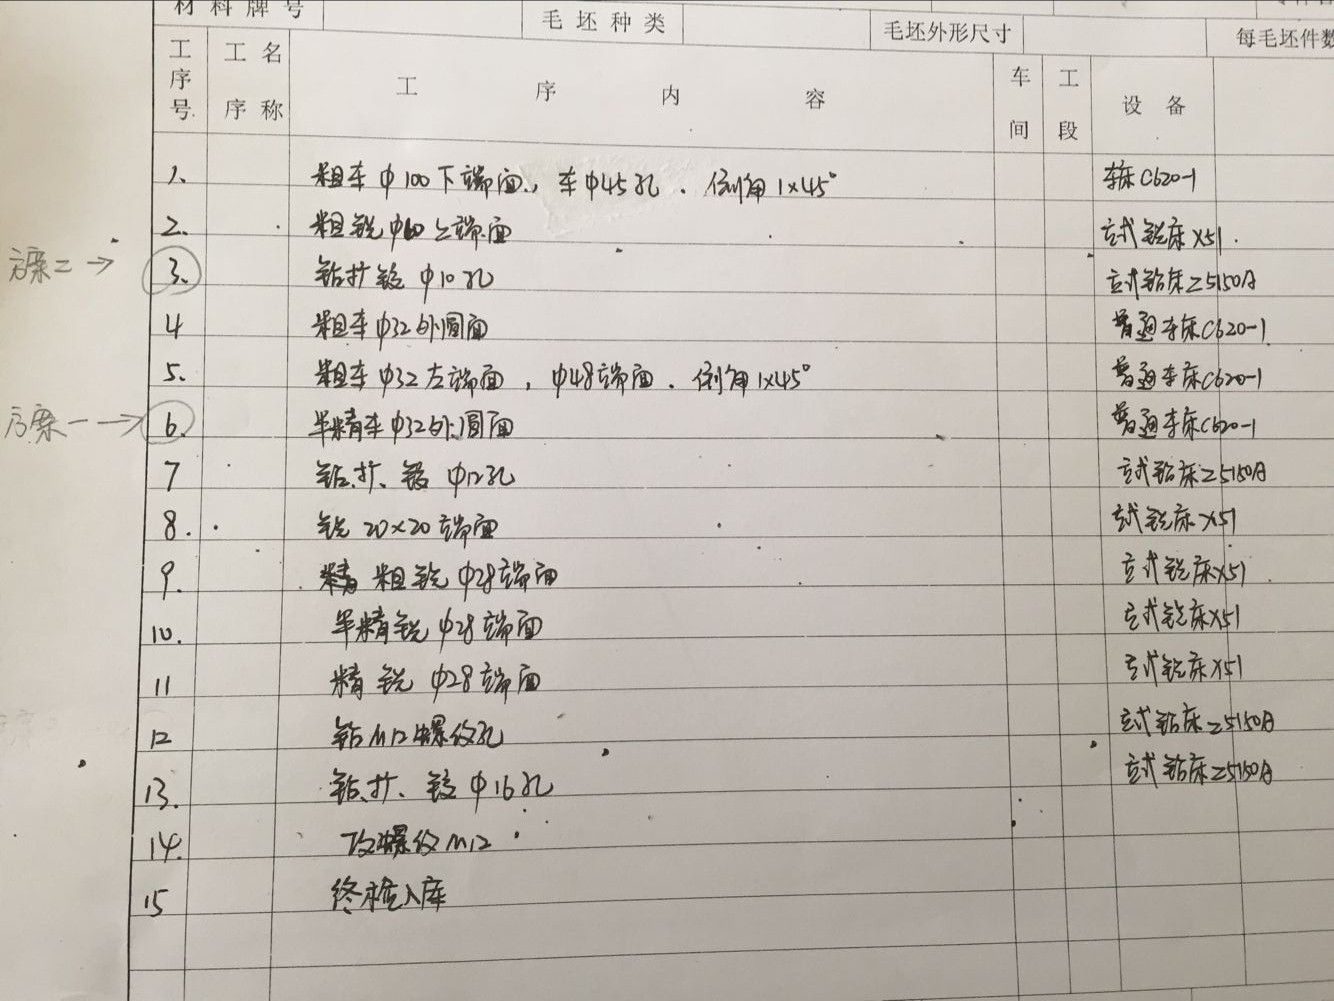 材料牌号 毛坯种类 毛坯外形尺寸 每毛坯件数
工序号 工序名称 工序内容 车间 工段 设备
1. 粗车φ100下端面,车φ45孔.倒角1×45° 车床C620-1
2. 粗铣φ60上端面 立式铣床X51.
方案二→ 3. 钻扩铰φ10孔 立式钻床Z5150A
4 粗车φ32外圆面 普通车床C620-1
5. 粗车φ32左端面,φ48端面.倒角1×45° 普通车床C620-1
方案一→ 6. 半精车φ32外圆面 普通车床C620-1
7 钻、扩、铰φ12孔 立式钻床Z5150A
8. 铣20×20端面 立式铣床X51
9. 粗铣φ28端面 立式铣床X51
10. 半精铣φ28端面 立式铣床X51
11 精铣φ28端面 立式铣床X51
12 钻M12螺纹孔 立式钻床Z5150A
13. 钻、扩、铰φ16孔 立式钻床Z5150A
14. 攻螺纹M12
15 终检入库